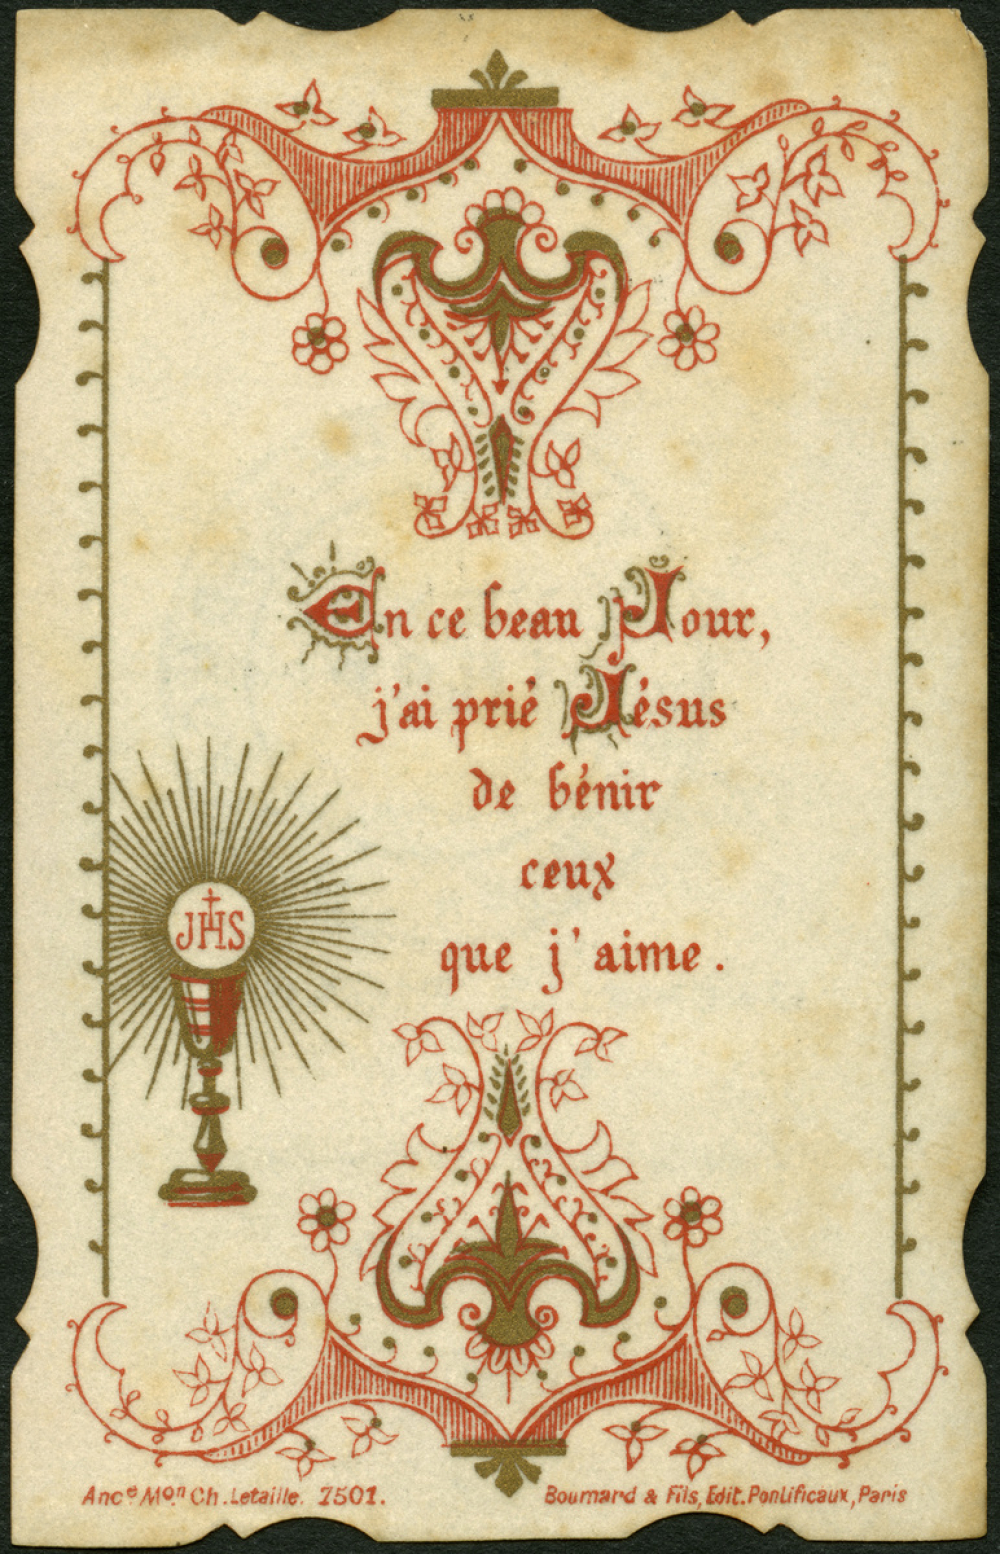 En ce beau Jour,
j'ai prié Jésus
de bénir
ceux
que j'aime.
JHS
Ancᵉ Mᵒⁿ Ch. Letaille. 7501.
Boumard & Fils, Edit. Pontificaux, Paris